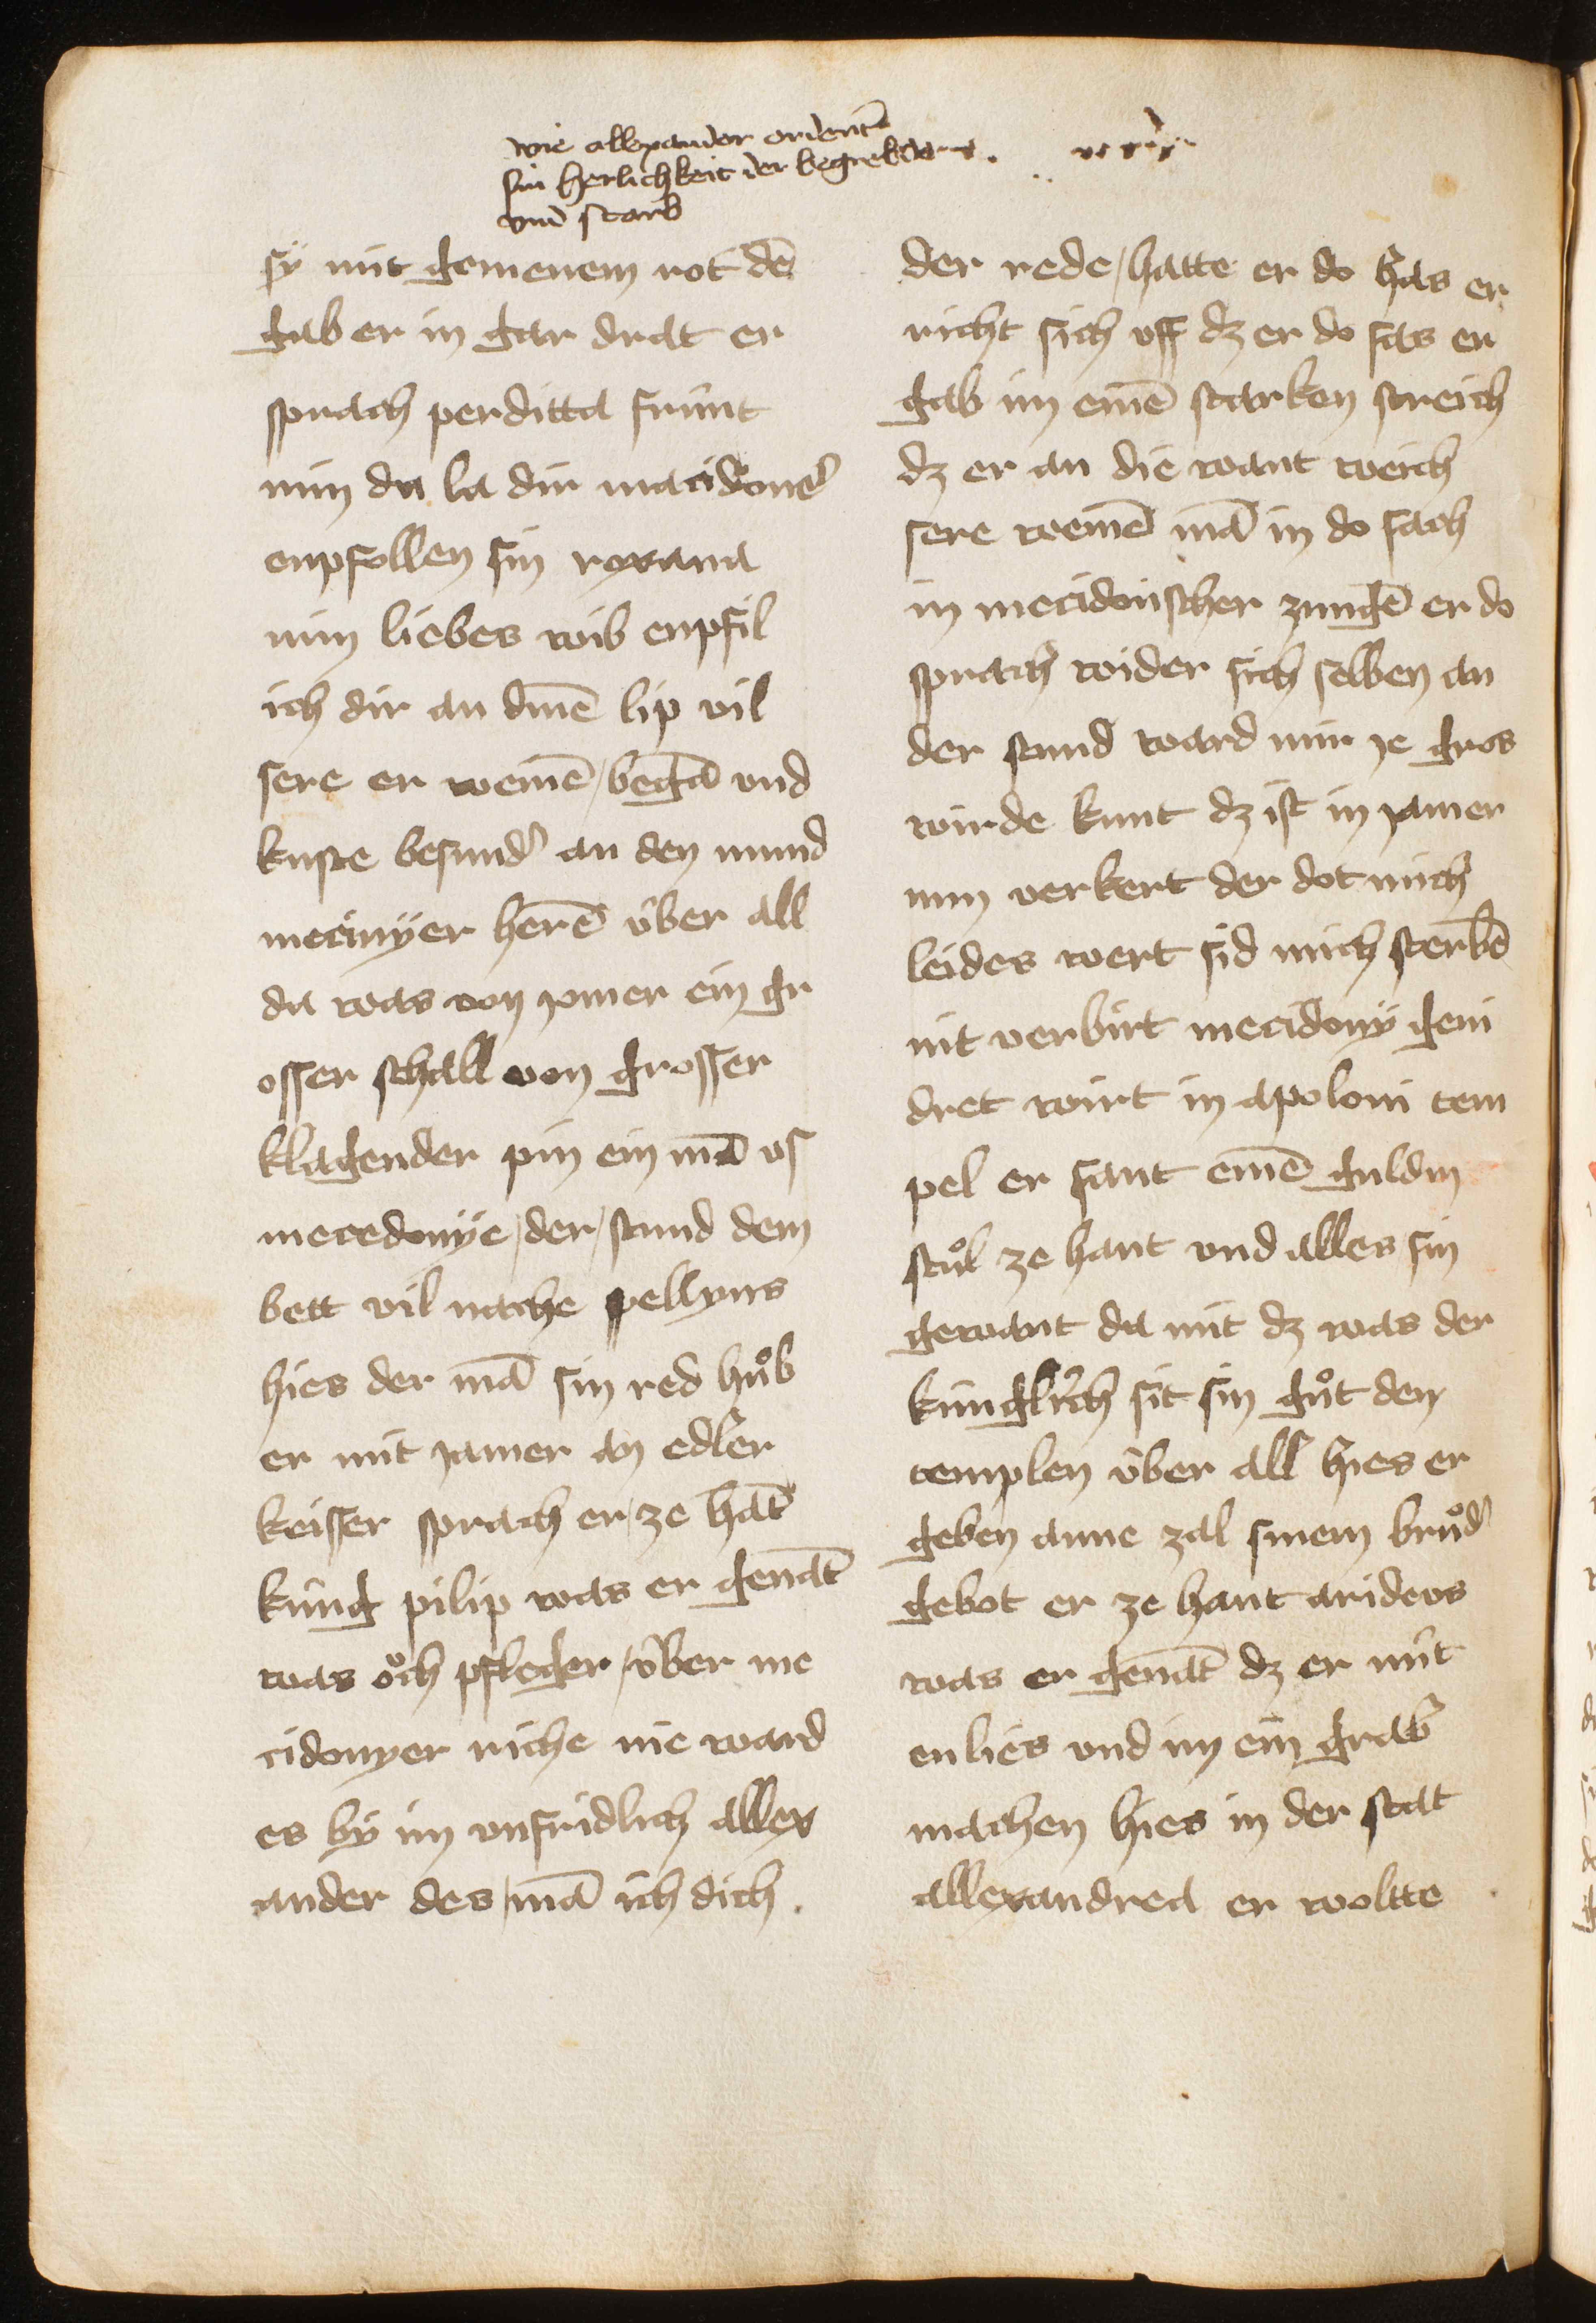 wie allexander ordent
sin herlichkeit der begrebd
vnd starb
sÿ mit gemenem rot dē
gab er in gar drat er
sprach perditta frünt
min du la dir macidoner̄
enpfollen sin roxana
min liebes wib enpfil
ich dir an dinē lip vil
sere er weinē began̄ vnd
kuste besunder̄ an den mund
mecinyer herē über all
da was von jomer ein gr
osser schall von grosser
klagender pin ein mā vs
mecedonÿe der stund dem
bett vil nache pellyurs
hies der mā sin red hůb
er mit jamer an edler
keisser sprach er ze hāt
küng pilip was er genāt
was och pfleger über me
cidonyer riche nie ward
es bÿ im vnfridlich allex
ander des mā ich dich
der rede hatte er do has er
richt sich vff dz er do sas er
gab im einē starken streich
dz er an die want weich
sere weinē mā in do sach
in mecidonischer zungē er do
sprach wider sich selben an
der stund ward mir ze gros
wirde kunt dz ist in jamer
nun verkert der dot mich
leides wert sid mich sterbē
nit verbirt mecidonÿ geni
dret wirt in apoloni tem
pel er sant einē guldin
stůl ze hant vnd alles sin
gewant da mit dz was der
künglich sit sin gůt den
templen über all hies er
geben anne zal sinem brůder̄
gebot er ze hant arideos
was er genāt dz er nüt
enlies vnd im ein grab
machen hies in der statt
allexandrea er woltte